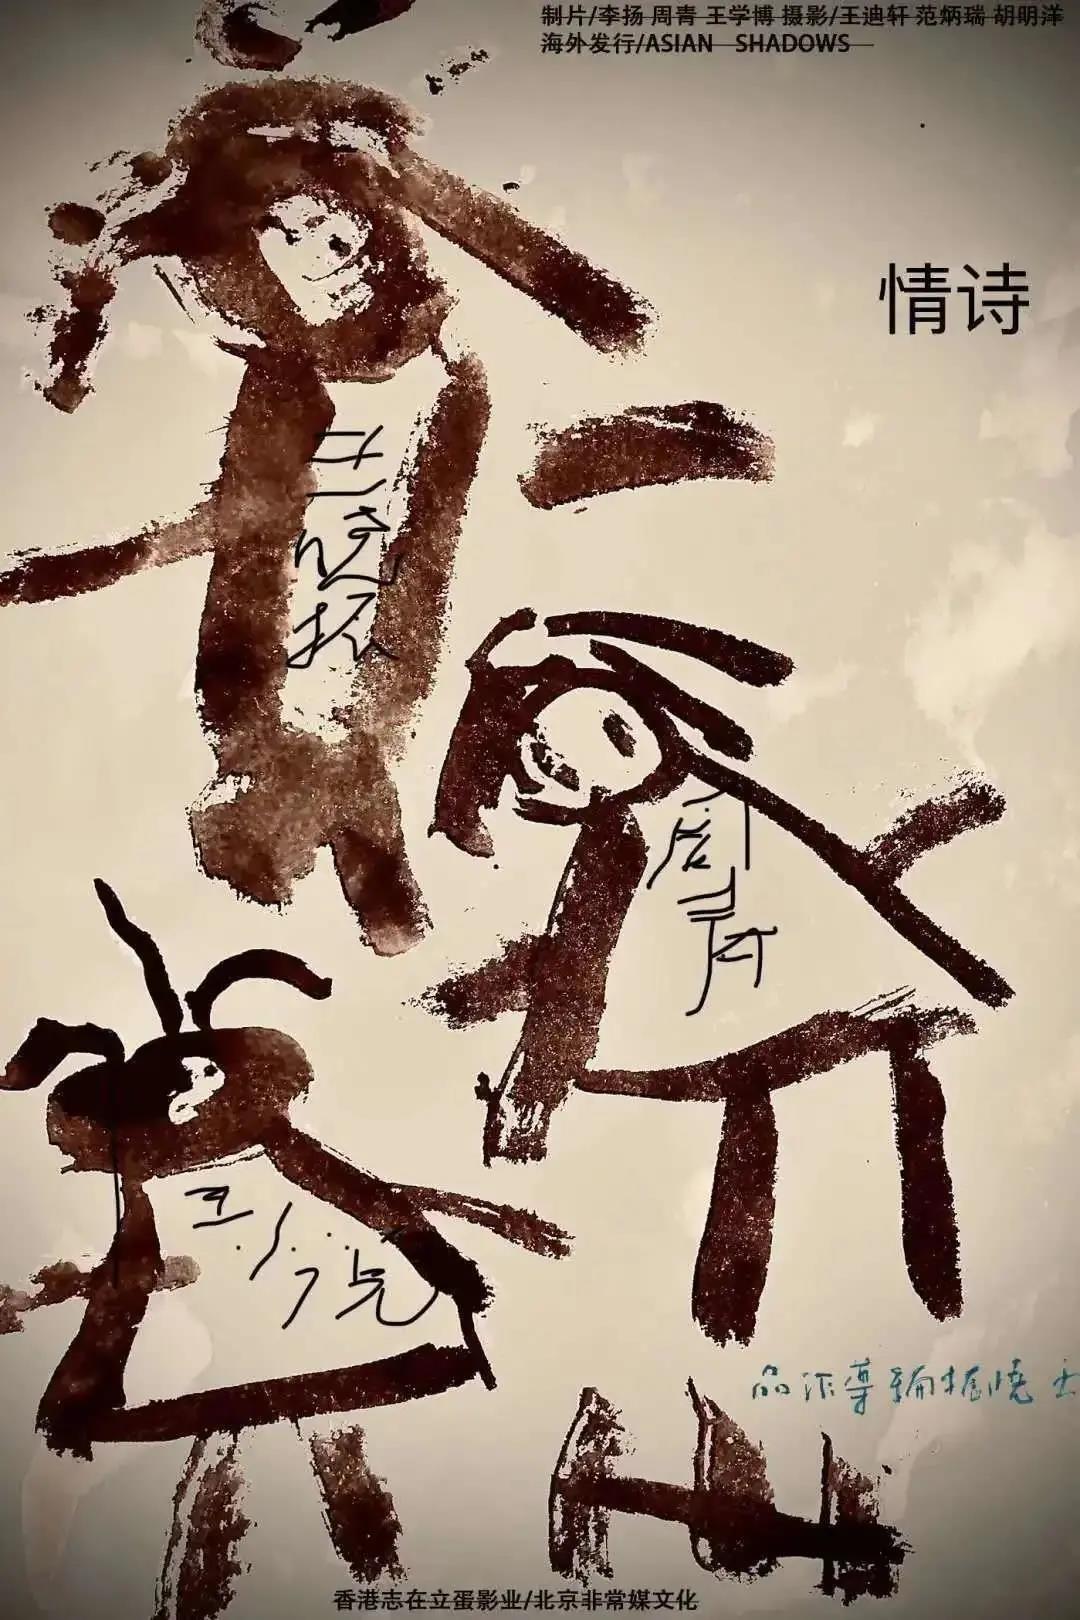 制片/李扬 周青 王学博 摄影/王迪轩 范炳瑞 胡明洋
海外发行/ASIAN SHADOWS
情诗
王晓振
周青
品作導编振曉王
香港志在立蛋影业/北京非常媒文化